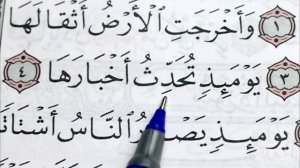 ١ وَأَخْرَجَتِ ٱلْأَرْضُ أَثْقَالَهَا
٣ يَوْمَئِذٍ تُحَدِّثُ أَخْبَارَهَا ٤
يَوْمَئِذٍ يَصْدُرُ ٱلنَّاسُ أَشْتَاتًا